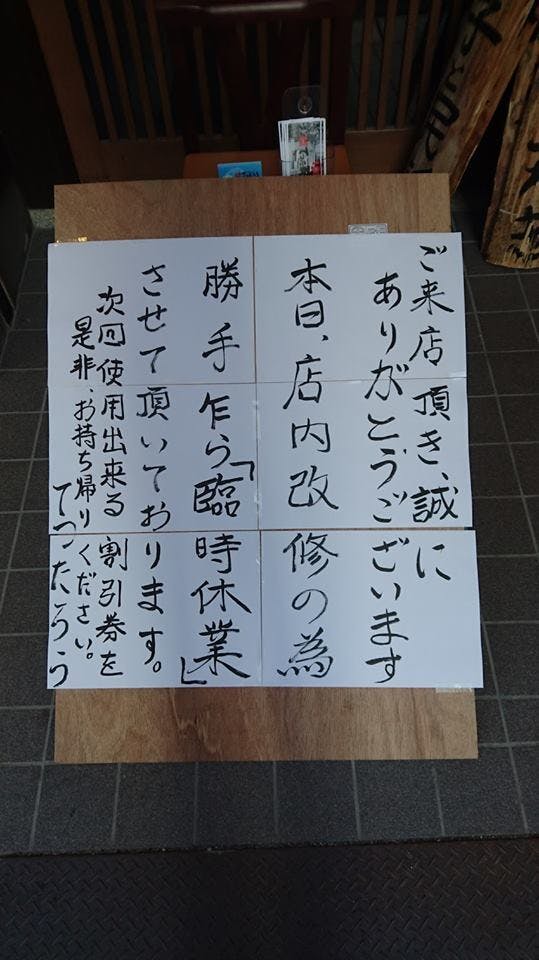 ご来店頂き、誠に
ありがとうございます
本日、店内改修の為
勝手乍ら「臨時休業」
させて頂いております。
次回使用出来る割引券を
是非、お持ち帰りください。
てつたろう